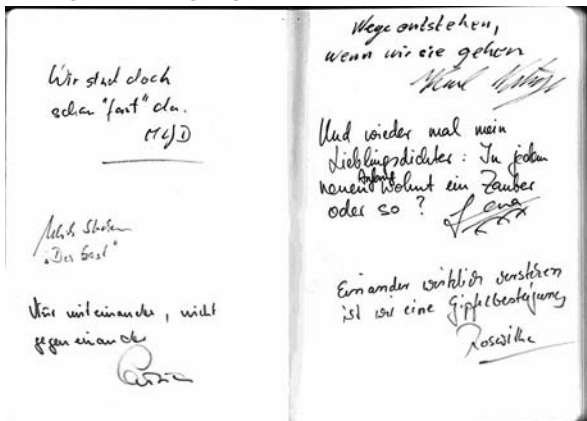 Wir sind doch
schon "fast" da.
"Der Gast"
Nur miteinander, nicht
gegeneinander
Wege entstehen,
wenn wir sie gehen
Karl
Und wieder mal mein
Lieblingsdichter: In jedem
neuen Anfang wohnt ein Zauber
oder so? Lena
Einander wirklich verstehen
ist wie eine Gipfelbesteigung
Roswitha